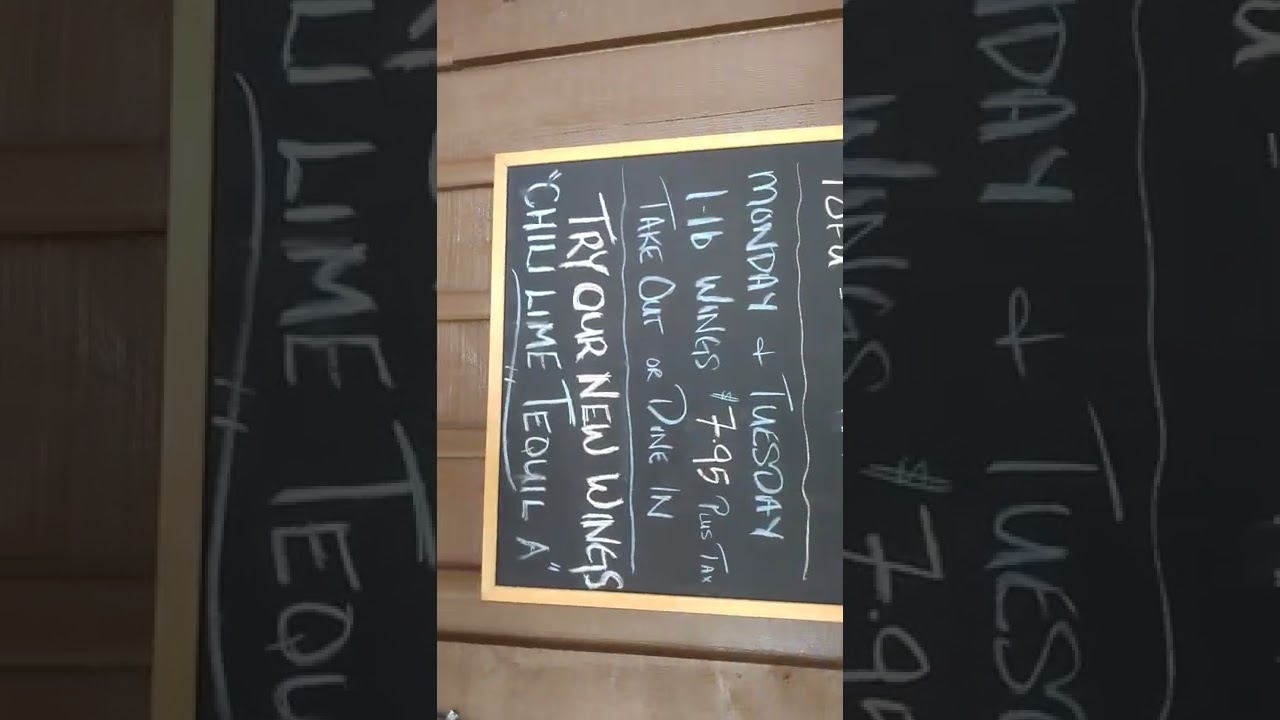 MONDAY & TUESDAY
1-lb WINGS $7.95 PLUS TAX
TAKE OUT OR DINE IN
TRY OUR NEW WINGS
"CHILI LIME TEQUILA"